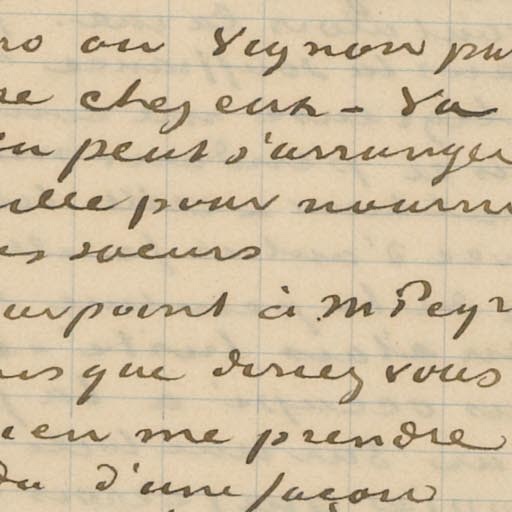 ro ou Veynon pu
re chez eux - Va
in peut s'arranger
ille pour nourri
es soeurs
ur point à M Peyr
ais que diriez vous
ien me prendre
du d'une façon